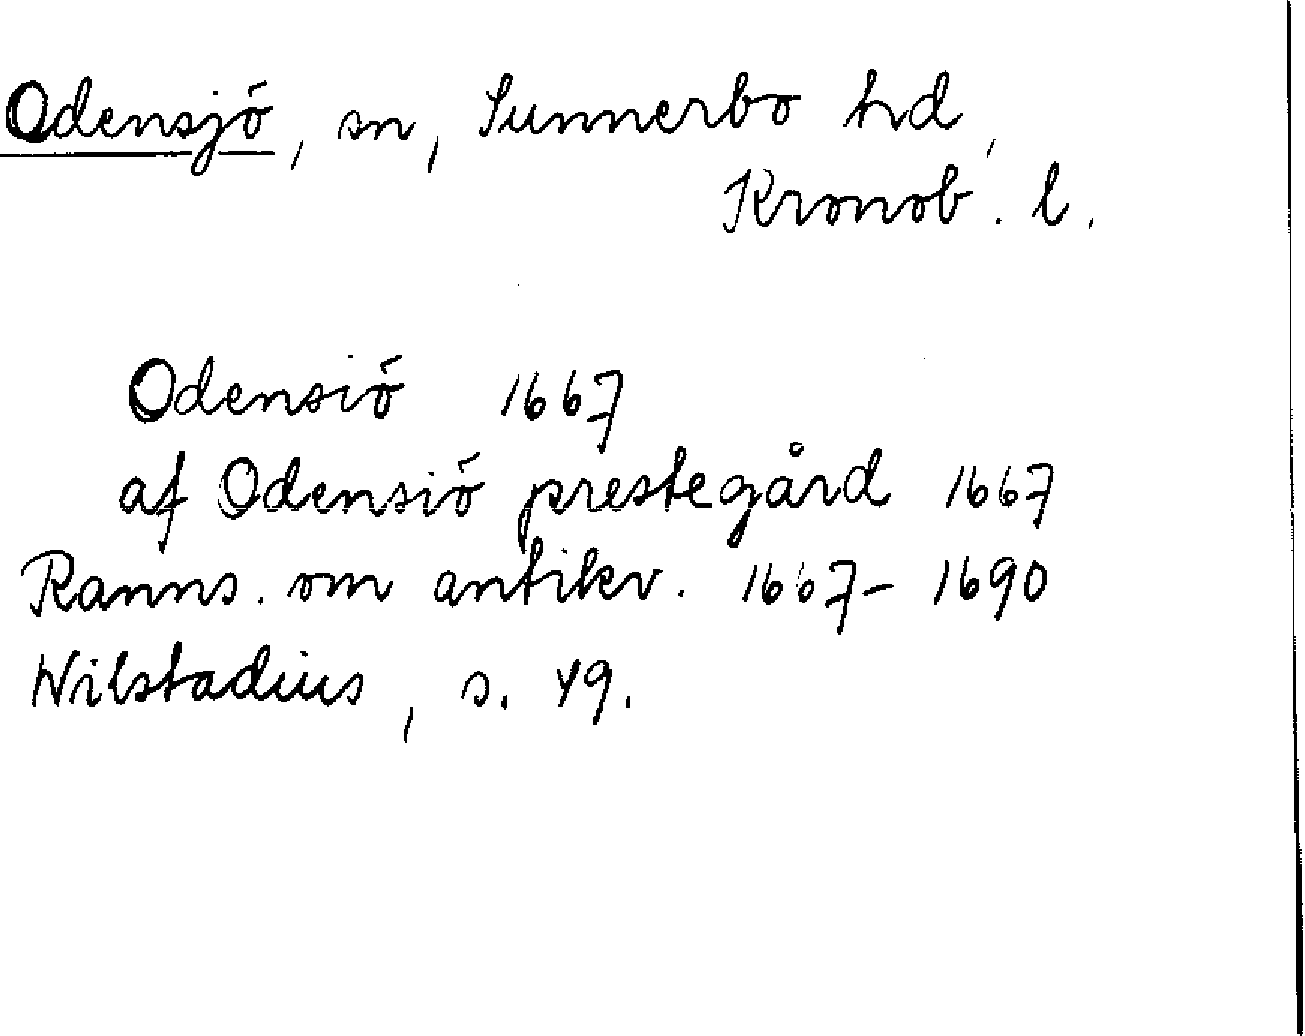 Odensjö, sn, Sunnerbo hd,
Kronob. l.
Odensiö 1667
af Odensiö prestegård 1667
Ranns. om antikv. 1667-1690
Wilstadius, s. 49.